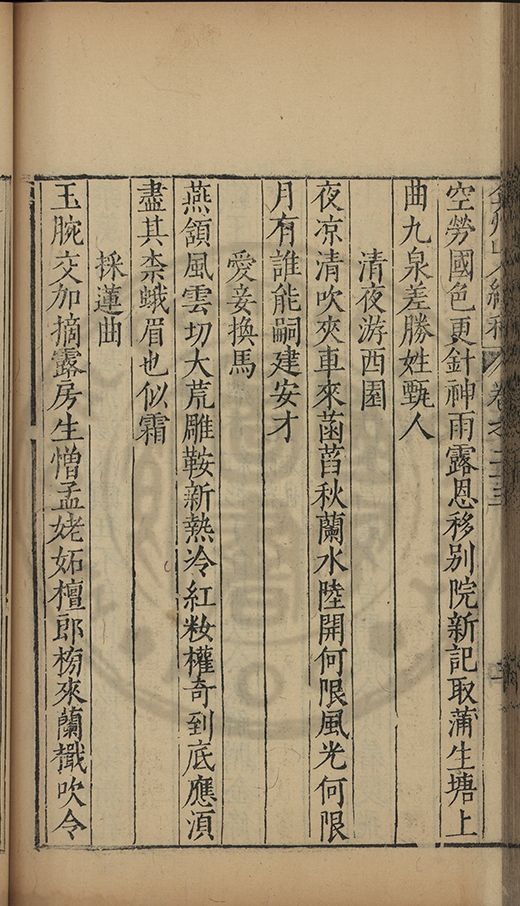 弇州山人續稿 卷之二十三
空勞國色更針神雨露恩移別院新記取蒲生塘上
曲九泉差勝姓甄人
清夜游西園
夜凉清吹夾車來菡萏秋蘭水陸開何限風光何限
月有誰能嗣建安才
愛妾換馬
燕頷風雲切大荒雕鞍新熱冷紅粧權竒到底應須
盡其柰蛾眉也似霜
採蓮曲
玉腕交加摘露房生憎孟姥妬檀郎栴來蘭檝吹令